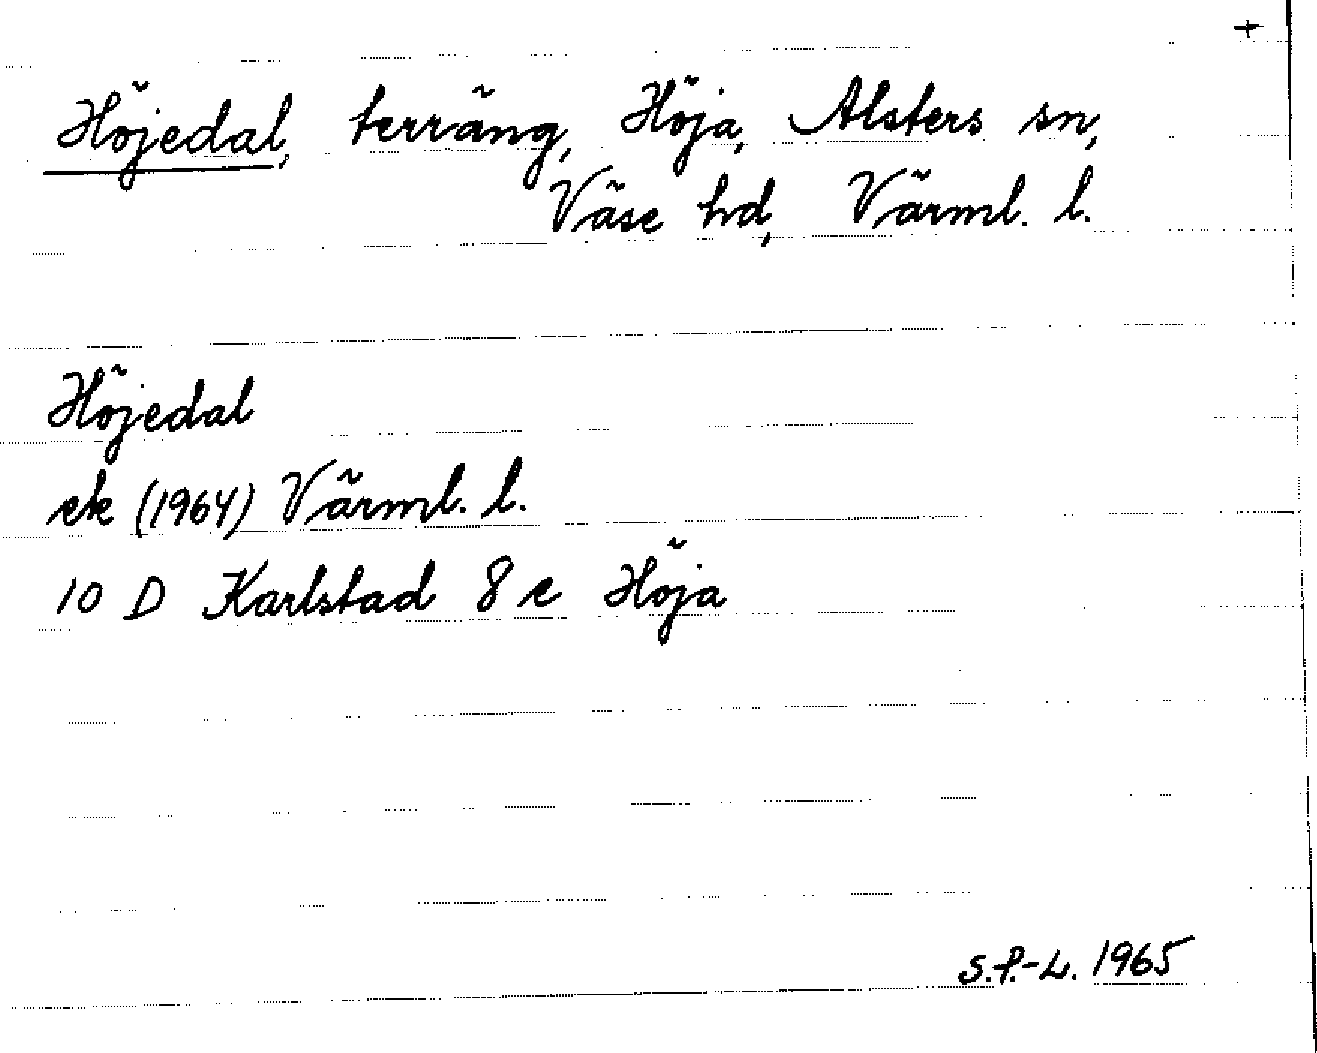 +
Höjedal, terräng, Höja, Alsters sn,
Väse hd, Värml. l.
Höjedal
ek (1964) Värml. l.
10 D Karlstad 8 e Höja
S.P.-L. 1965